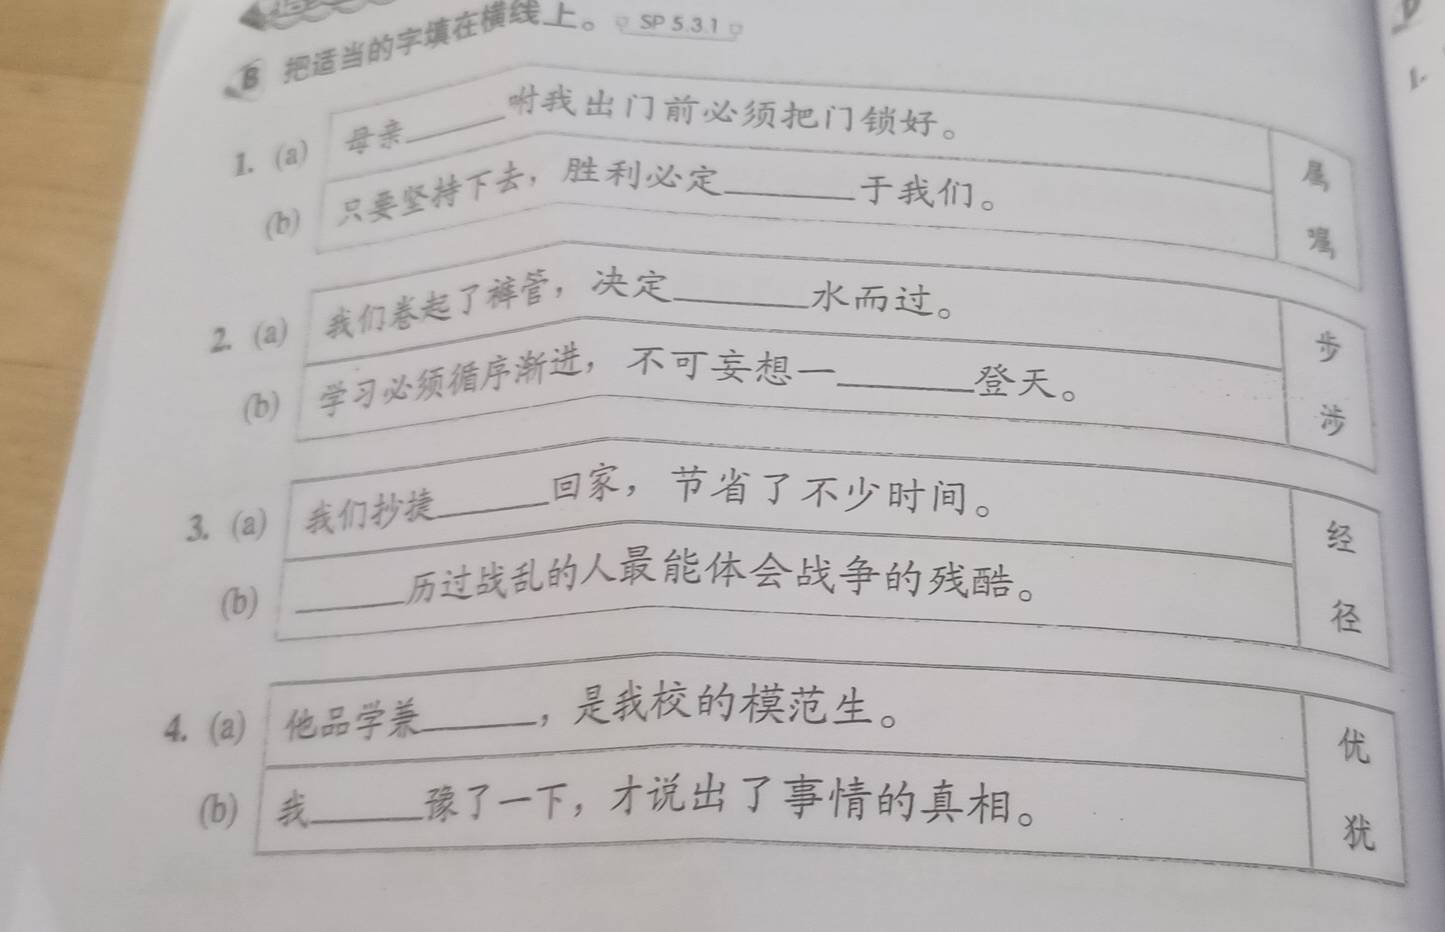 B 把适当的字填在横线上。 SP 5.3.1
1. (a) 母亲______咐我出门前必须把门锁好。
(b) 只要坚持下去，胜利必定______于我们。
属
嘱
2. (a) 我们卷起了裤管，决定______水而过。
(b) 学习必须循序渐进，不可妄想一______登天。
步
涉
3. (a) 我们抄捷______回家，节省了不少时间。
(b) ______历过战乱的人最能体会战争的残酷。
经
径
4. (a) 他品学兼______，是我校的模范生。
(b) 我______豫了一下，才说出了事情的真相。
优
犹
1.